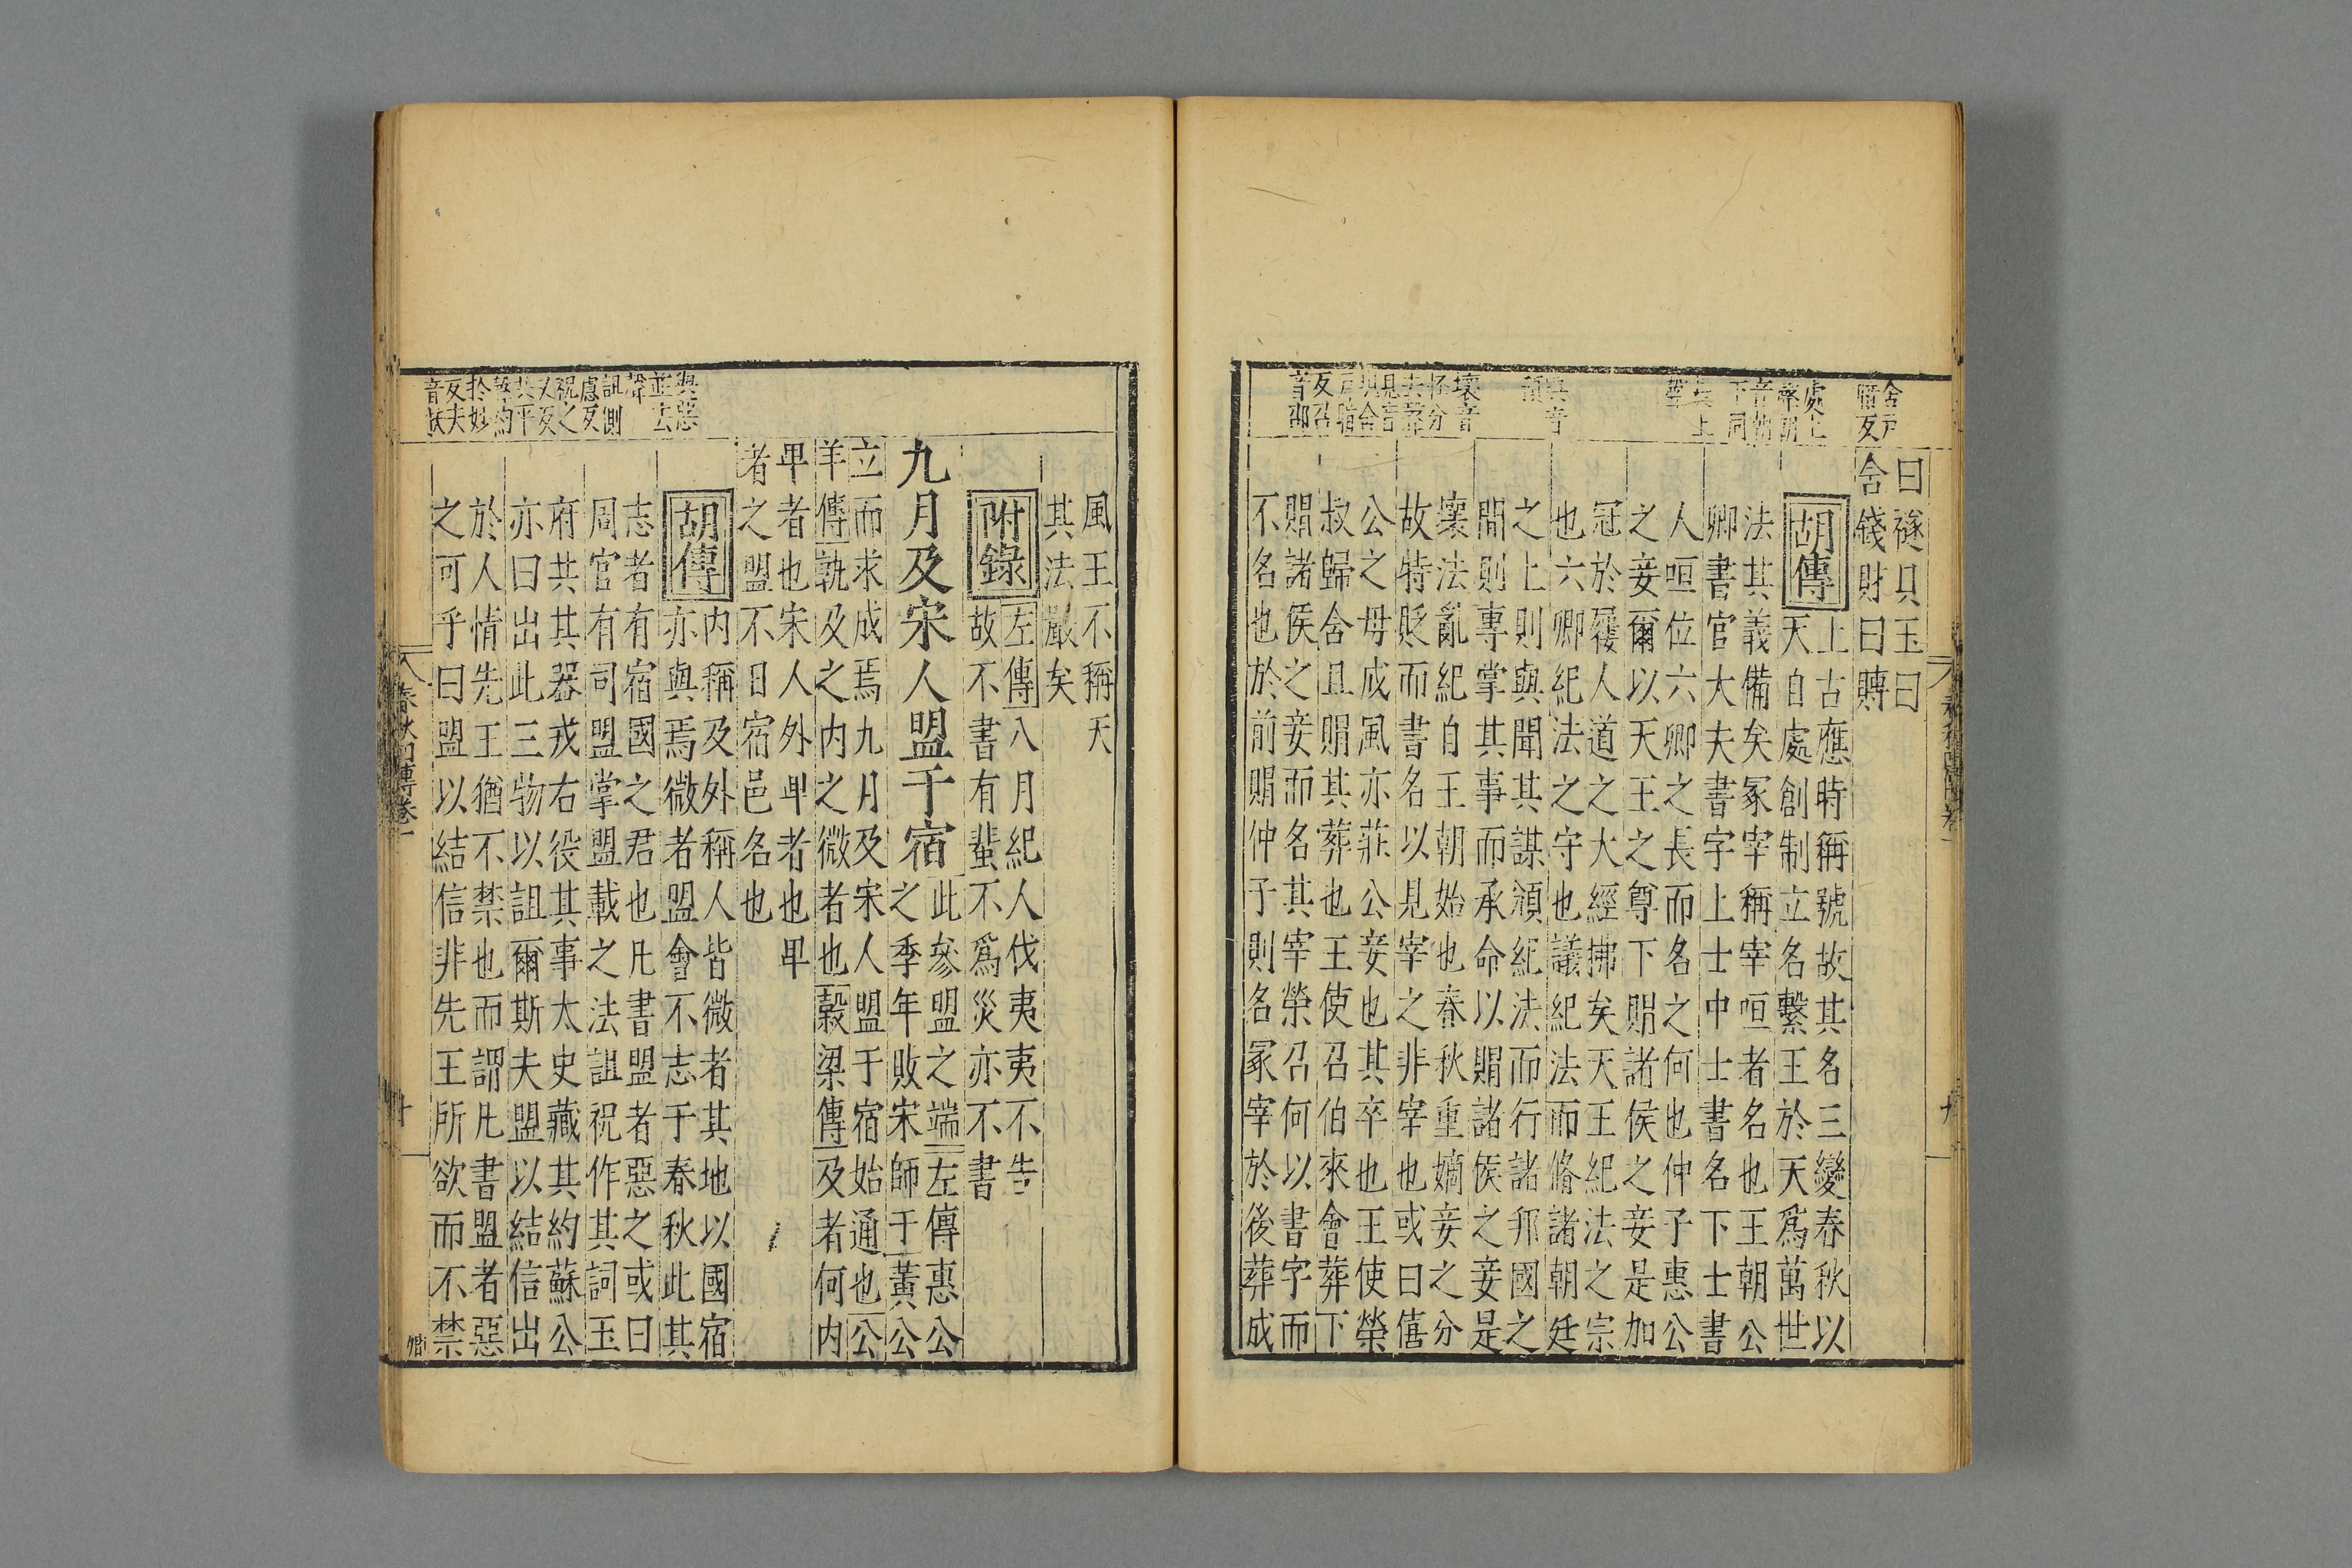 含戶
暗反
處上
聲朝
音潮
下同
長上
聲
與音
預
壞音
怪分
去聲
戶暗
反召
音邵
曰襚貝玉曰
含錢財曰賻
胡傳
上古應時稱號故其名三變春秋以
天自處創制立名繫王於天爲萬世
法其義備矣冢宰稱宰咺者名也王朝公
卿書官大夫書字上士中士書名下士書
人咺位六卿之長而名之何也仲子惠公
之妾爾以天王之尊下賵諸侯之妾是加
冠於屨人道之大經拂矣天王紀法之宗
也六卿紀法之守也議紀法而脩諸朝廷
之上則與聞其謀頒紀法而行諸邦國之
間則專掌其事而承命以賵諸侯之妾是
壞法亂紀自王朝始也春秋重嫡妾之分
故特貶而書名以見宰之非宰也或曰僖
公之母成風亦莊公妾也其卒也王使榮
叔歸含且賵其葬也王使召伯來會葬下
賵諸侯之妾而名其宰榮召何以書字而
不名也於前賵仲子則名冢宰於後葬成
與惡
並去
聲
詛側
慮反
祝之
又反
共平
聲約
於妙
反夫
音扶
風王不稱天
其法嚴矣
附錄
左傳八月紀人伐夷夷不告
故不書有蜚不爲災亦不書
九月及宋人盟于宿
此參盟之端左傳惠公
之季年敗宋師于黃公
立而求成焉九月及宋人盟于宿始通也公
羊傳孰及之內之微者也穀梁傳及者何內
卑者也宋人外卑者也卑
者之盟不日宿邑名也
胡傳
內稱及外稱人皆微者其地以國宿
亦與焉微者盟會不志于春秋此其
志者有宿國之君也凡書盟者惡之或曰
周官有司盟掌盟載之法詛祝作其詞玉
府共其器戎右役其事太史藏其約蘇公
亦曰出此三物以詛爾斯夫盟以結信出
於人情先王猶不禁也而謂凡書盟者惡
之可乎曰盟以結信非先王所欲而不禁
春秋四傳卷一
十